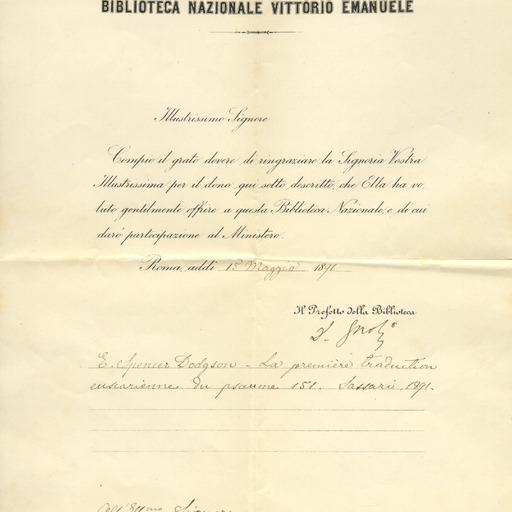 BIBLIOTECA NAZIONALE VITTORIO EMANUELE
Illustrissimo Signore
Compio il grato dovere di ringraziare la Signoria Vostra
Illustrissima per il dono qui sotto descritto, che Ella ha vo
luto gentilmente offrire a questa Biblioteca Nazionale, e di cui
darò partecipazione al Ministero.
Roma, addì 15 Maggio 1891
Il Prefetto della Biblioteca
D. Gnoli
E. Spencer Dodgson - La première traduction
euskarienne du psaume 151. Sassari, 1891.